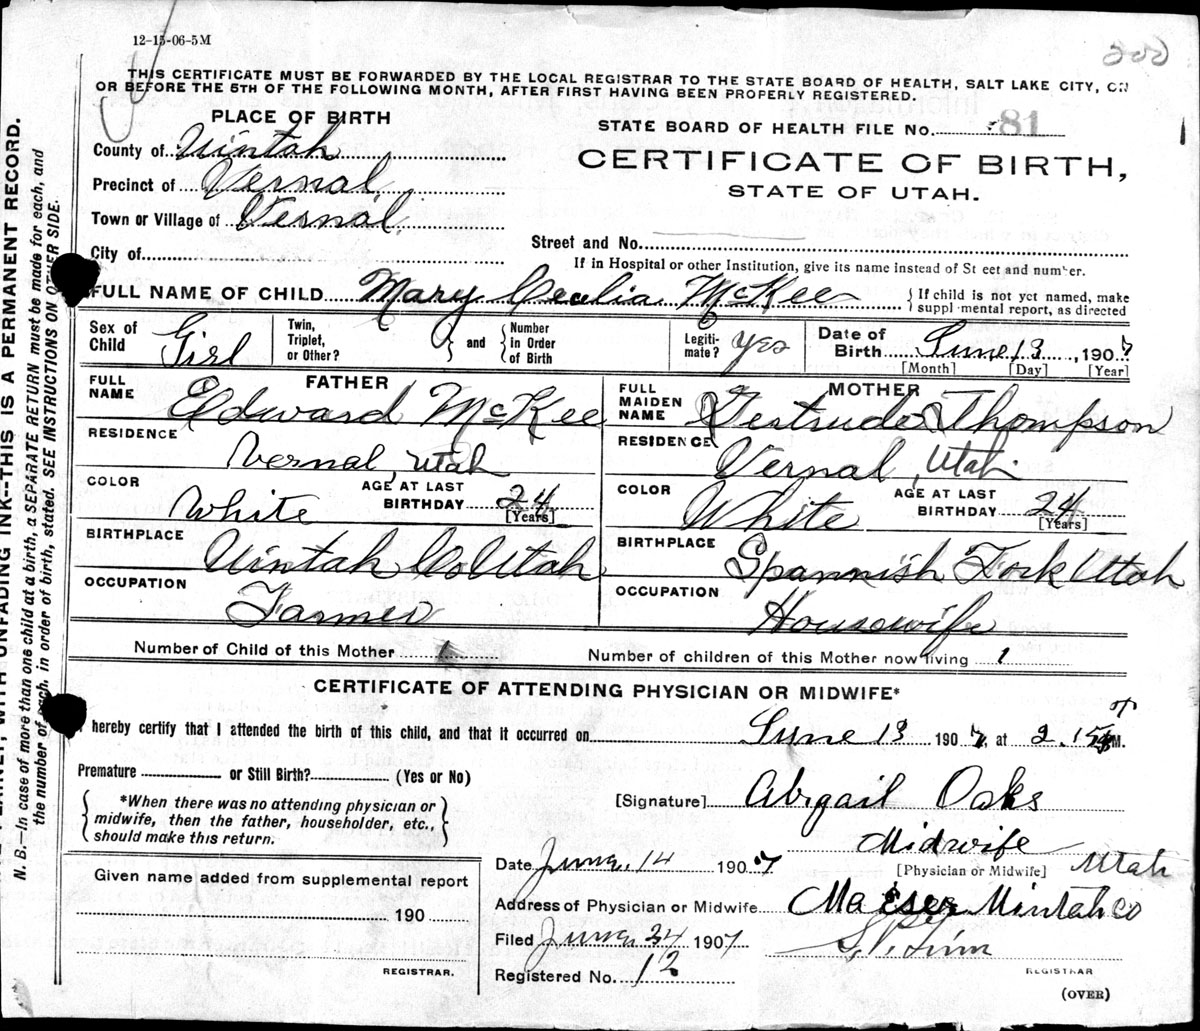 12-15-06-5M
200
THIS CERTIFICATE MUST BE FORWARDED BY THE LOCAL REGISTRAR TO THE STATE BOARD OF HEALTH, SALT LAKE CITY, ON
OR BEFORE THE 5TH OF THE FOLLOWING MONTH, AFTER FIRST HAVING BEEN PROPERLY REGISTERED.
PLACE OF BIRTH
County of Uintah
Precinct of Vernal
Town or Village of Vernal
City of
STATE BOARD OF HEALTH FILE No. 81
CERTIFICATE OF BIRTH,
STATE OF UTAH.
Street and No.
If in Hospital or other Institution, give its name instead of St eet and number.
FULL NAME OF CHILD Mary Cecelia McKee { If child is not yet named, make
suppl·mental report, as directed
Sex of Child Girl
Twin, Triplet, or Other? } and { Number in Order of Birth
Legiti-mate? Yes
Date of Birth June 13, 1907
[Month] [Day] [Year]
FATHER
FULL NAME Edward McKee
RESIDENCE Vernal, Utah
COLOR White AGE AT LAST BIRTHDAY 24
[Years]
BIRTHPLACE Uintah Co Utah
OCCUPATION Farmer
MOTHER
FULL MAIDEN NAME Gertrude Thompson
RESIDENCE Vernal, Utah.
COLOR White AGE AT LAST BIRTHDAY 24
[Years]
BIRTHPLACE Spannish Fork Utah
OCCUPATION Housewife
Number of Child of this Mother 1 Number of children of this Mother now living 1
CERTIFICATE OF ATTENDING PHYSICIAN OR MIDWIFE*
I hereby certify that I attended the birth of this child, and that it occurred on June 13 1907, at 2.15 M.
Premature or Still Birth? (Yes or No)
*When there was no attending physician or
midwife, then the father, householder, etc.,
should make this return.
[Signature] Abigail Oaks
Midwife
[Physician or Midwife]
Date June 14 1907
Address of Physician or Midwife Maeser Uintah Co Utah
Filed June 24 1907
REGISTRAR
Registered No. 12
(OVER)
Given name added from supplemental report
190
REGISTRAR.
PLAINLY, WITH UNFADING INK--THIS IS A PERMANENT RECORD.
N. B.—In case of more than one child at a birth, a SEPARATE RETURN must be made for each, and
the number of each, in order of birth, stated. SEE INSTRUCTIONS ON OTHER SIDE.